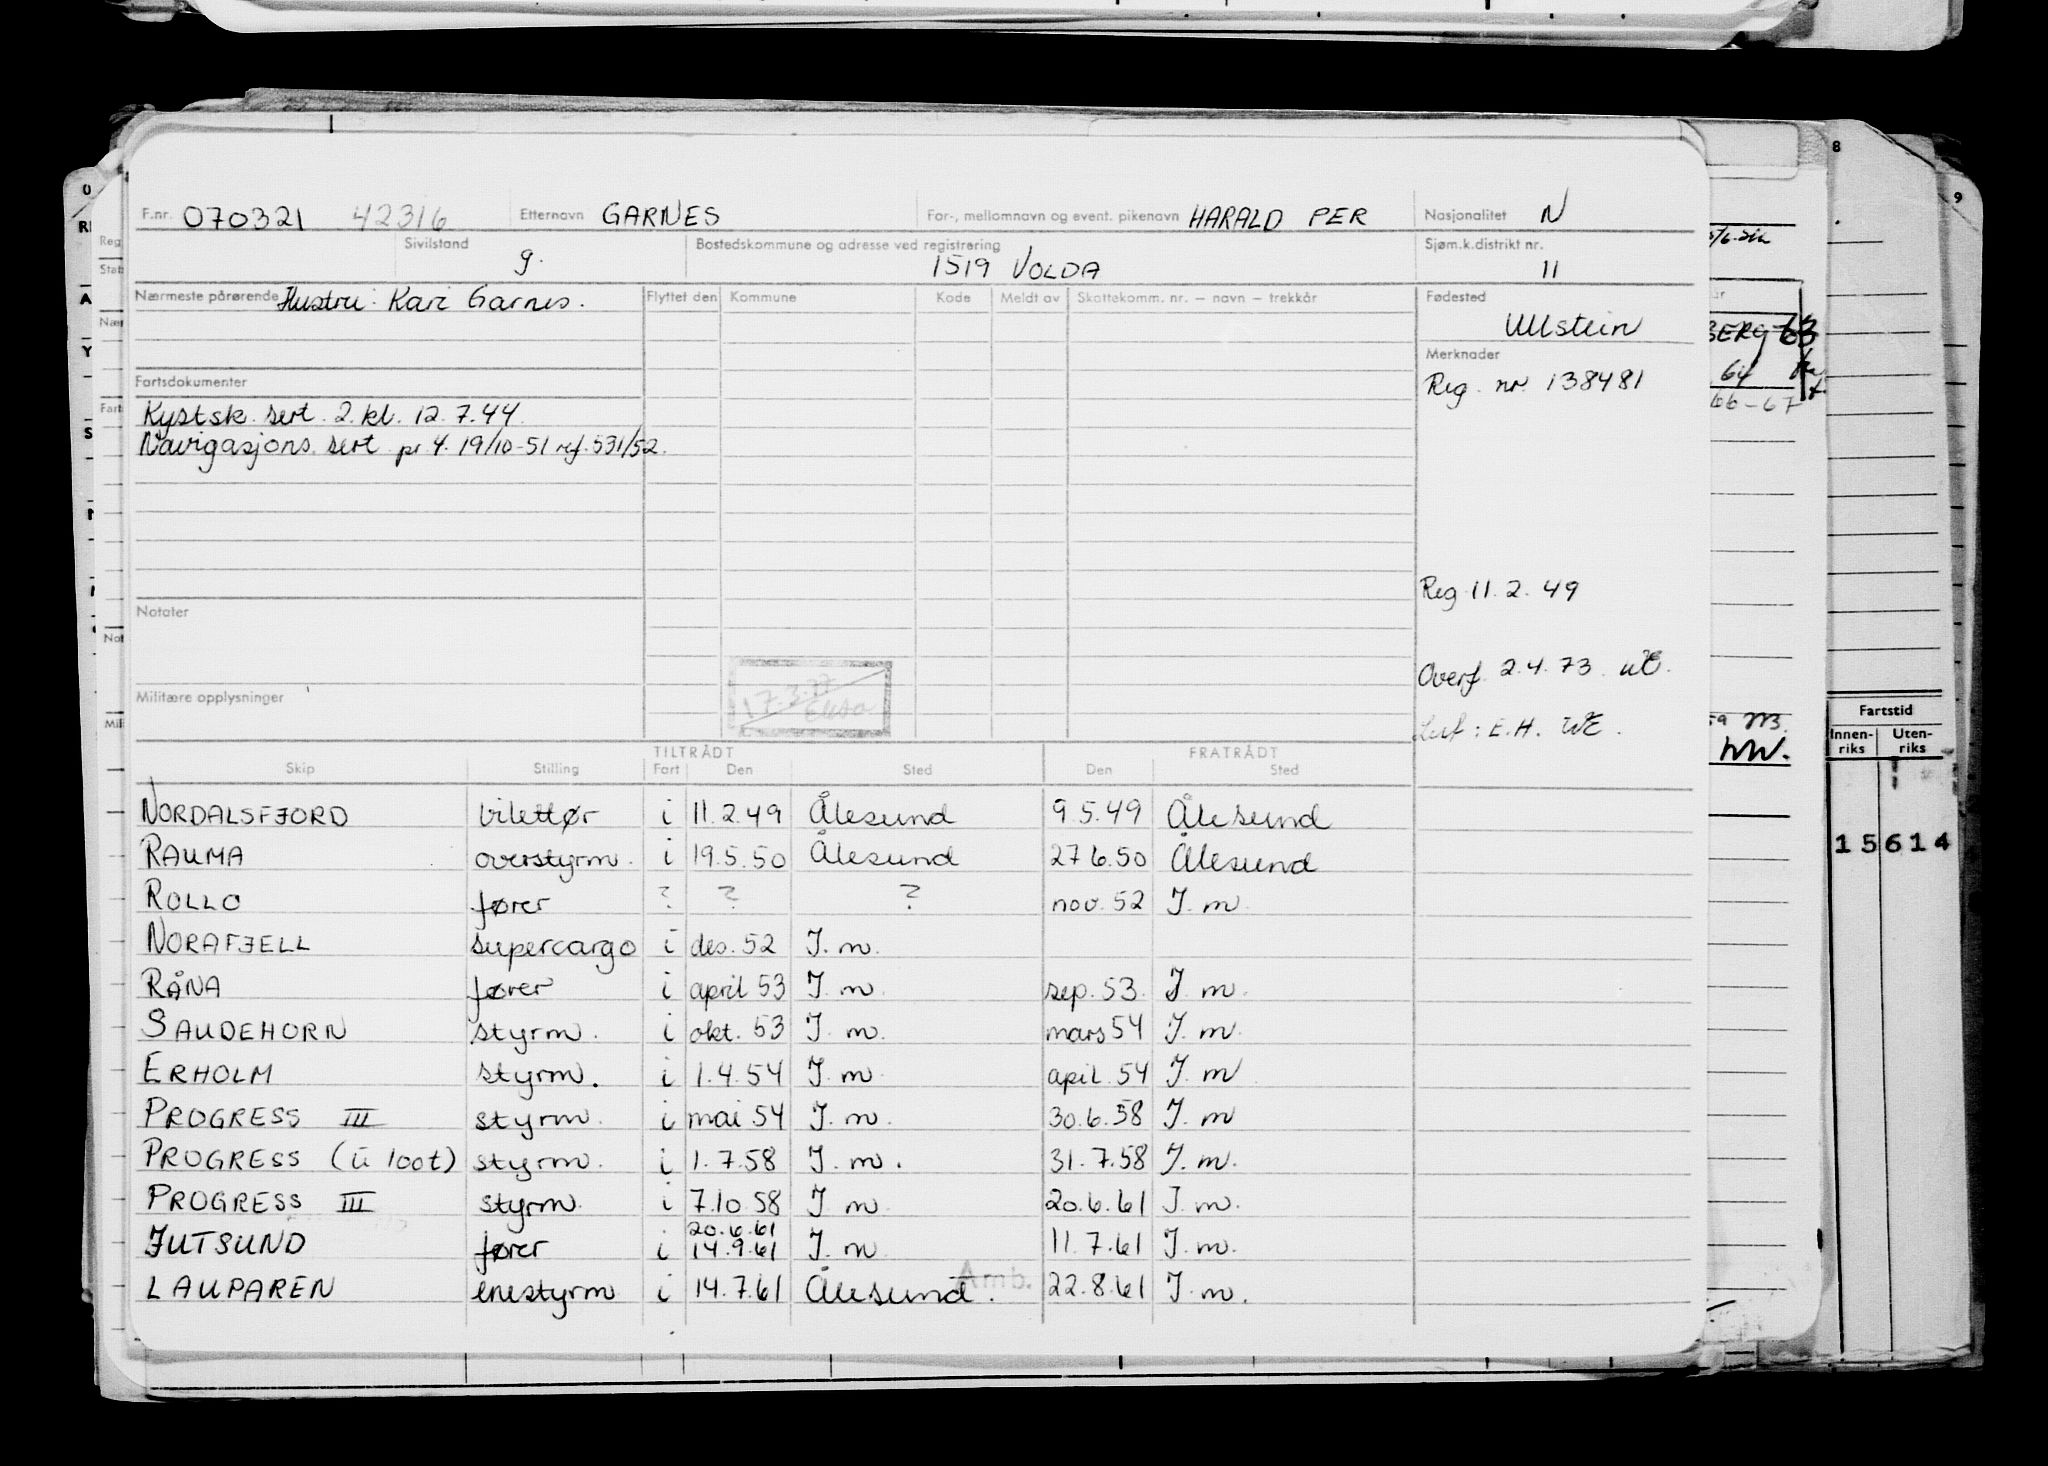 F.nr. 070321 42316 Etternavn GARNES For-, mellomnavn og event. pikenavn HARALD PER Nasjonalitet N
Sivilstand g. Bostedskommune og adresse ved registrering 1519 VOLDA Sjøm.k.distrikt nr. 11
Nærmeste pårørende Hustru: Kari Garnes. Flyttet den Kommune Kode Meldt av Skattekomm. nr. – navn – trekkår Fødested
Ullstein
Merknader
Reg. nr 138481
Fartsdokumenter
Kystsk. sert. 2. kl. 12.7.44.
Navigasjons. sert pr 4. 19/10-51 ref. 531/52.
Reg. 11.2.49
Notater
Overf. 2.4.73
Militære opplysninger
17.3.77
: E.H. WE.
TILTRÅDT FRATRÅDT
Skip Stilling Fart Den Sted Den Sted
NORDALSFJORD bilettør i 11.2.49 Ålesund 9.5.49 Ålesund
RAUMA overstyrm. i 19.5.50 Ålesund 27 6.50 Ålesund
ROLLO fører ? ? ? nov. 52 I. m
NORAFJELL supercargo i des. 52 I. m.
RÅNA fører i april 53 I. m. sep. 53. I. m.
SAUDEHORN styrm. i okt. 53 I. m. mars 54 I. m.
ERHOLM styrm. i 1.4.54 I. m. april 54 I. m
PROGRESS III styrm. i mai 54 I. m. 30.6.58 I. m
PROGRESS (u 100t) styrm. i 1.7.58 I. m. 31.7.58 I. m.
PROGRESS III styrm. i 7.10 58 I. m 20.6.61 I. m.
20.6.61
JUTSUND fører i 14.9.61 I. m 11.7.61 I. m.
LAUPAREN enestyrm i 14.7.61 Ålesund. Amb. 22.8.61 I. m.
8
9
BERG 63
64
66-67
Fartstid
Innen-riks Uten-riks
15614